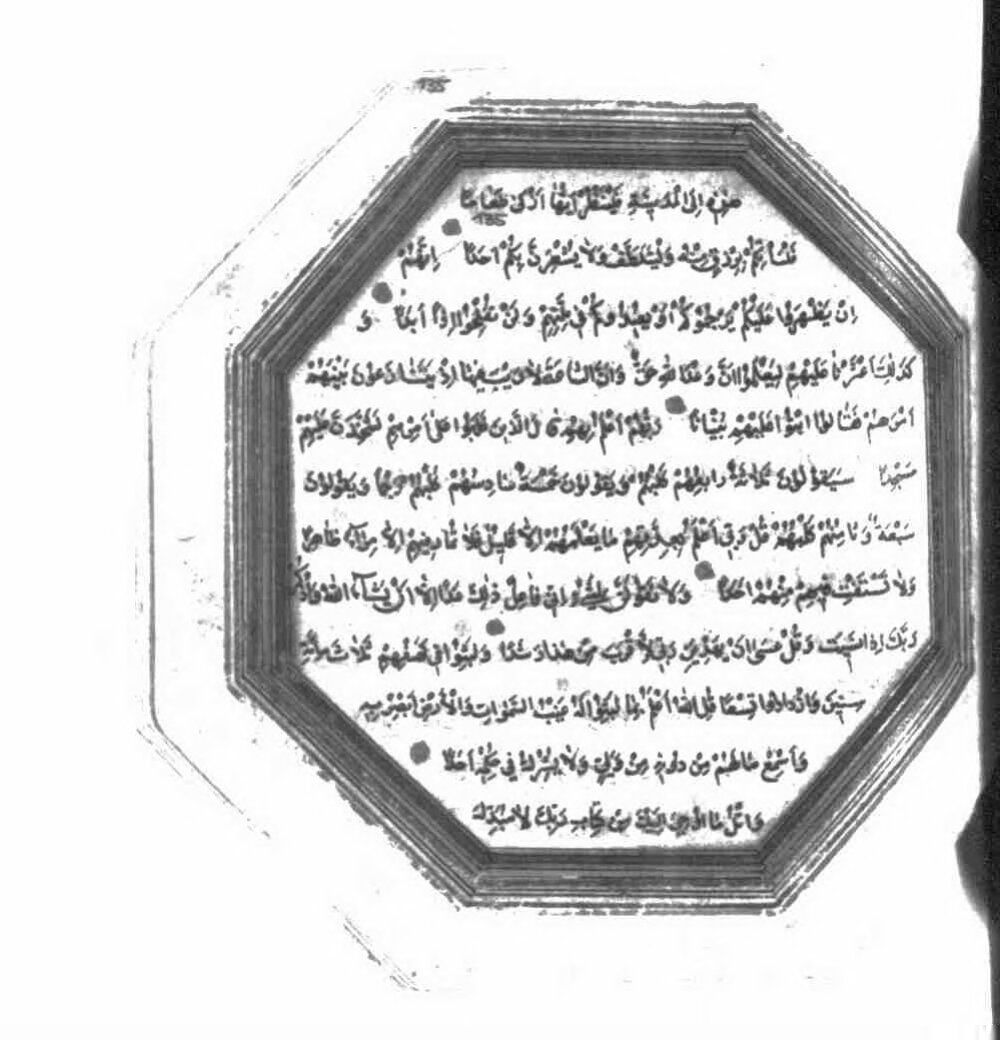 135
هٰذِهِ إِلَى الْمَدِينَةِ فَلْيَنْظُرْ أَيُّهَا أَزْكَى طَعَامًا
135
فَلْيَأْتِكُمْ بِرِزْقٍ مِنْهُ وَلْيَتَلَطَّفْ وَلَا يُشْعِرَنَّ بِكُمْ أَحَدًا إِنَّهُمْ
إِنْ يَظْهَرُوا عَلَيْكُمْ يَرْجُمُوكُمْ أَوْ يُعِيدُوكُمْ فِي مِلَّتِهِمْ وَلَنْ تُفْلِحُوا إِذًا أَبَدًا وَ
كَذٰلِكَ أَعْثَرْنَا عَلَيْهِمْ لِيَعْلَمُوا أَنَّ وَعْدَ اللهِ حَقٌّ وَأَنَّ السَّاعَةَ لَا رَيْبَ فِيهَا إِذْ يَتَنَازَعُونَ بَيْنَهُمْ
أَمْرَهُمْ فَقَالُوا ابْنُوا عَلَيْهِمْ بُنْيَانًا رَبُّهُمْ أَعْلَمُ بِهِمْ قَالَ الَّذِينَ غَلَبُوا عَلَى أَمْرِهِمْ لَنَتَّخِذَنَّ عَلَيْهِمْ
مَسْجِدًا سَيَقُولُونَ ثَلَاثَةٌ رَابِعُهُمْ كَلْبُهُمْ وَيَقُولُونَ خَمْسَةٌ سَادِسُهُمْ كَلْبُهُمْ رَجْمًا وَيَقُولُونَ
سَبْعَةٌ وَثَامِنُهُمْ كَلْبُهُمْ قُلْ رَبِّي أَعْلَمُ بِعِدَّتِهِمْ مَا يَعْلَمُهُمْ إِلَّا قَلِيلٌ فَلَا تُمَارِ فِيهِمْ إِلَّا مِرَاءً ظَاهِرًا
وَلَا تَسْتَفْتِ فِيهِمْ مِنْهُمْ أَحَدًا وَلَا تَقُولَنَّ لِشَيْءٍ إِنِّي فَاعِلٌ ذٰلِكَ غَدًا إِلَّا أَنْ يَشَاءَ اللهُ وَاذْكُرْ
رَبَّكَ إِذَا نَسِيتَ وَقُلْ عَسَى أَنْ يَهْدِيَنِ رَبِّي لِأَقْرَبَ مِنْ هٰذَا رَشَدًا وَلَبِثُوا فِي كَهْفِهِمْ ثَلَاثَ مِائَةٍ
سِنِينَ وَازْدَادُوا تِسْعًا قُلِ اللهُ أَعْلَمُ بِمَا لَبِثُوا لَهُ غَيْبُ السَّمٰوَاتِ وَالْأَرْضِ أَبْصِرْ بِهِ
وَأَسْمِعْ مَا لَهُمْ مِنْ دُونِهِ مِنْ وَلِيٍّ وَلَا يُشْرِكُ فِي حُكْمِهِ أَحَدًا
وَاتْلُ مَا أُوحِيَ إِلَيْكَ مِنْ كِتَابِ رَبِّكَ لَا مُبَدِّلَ